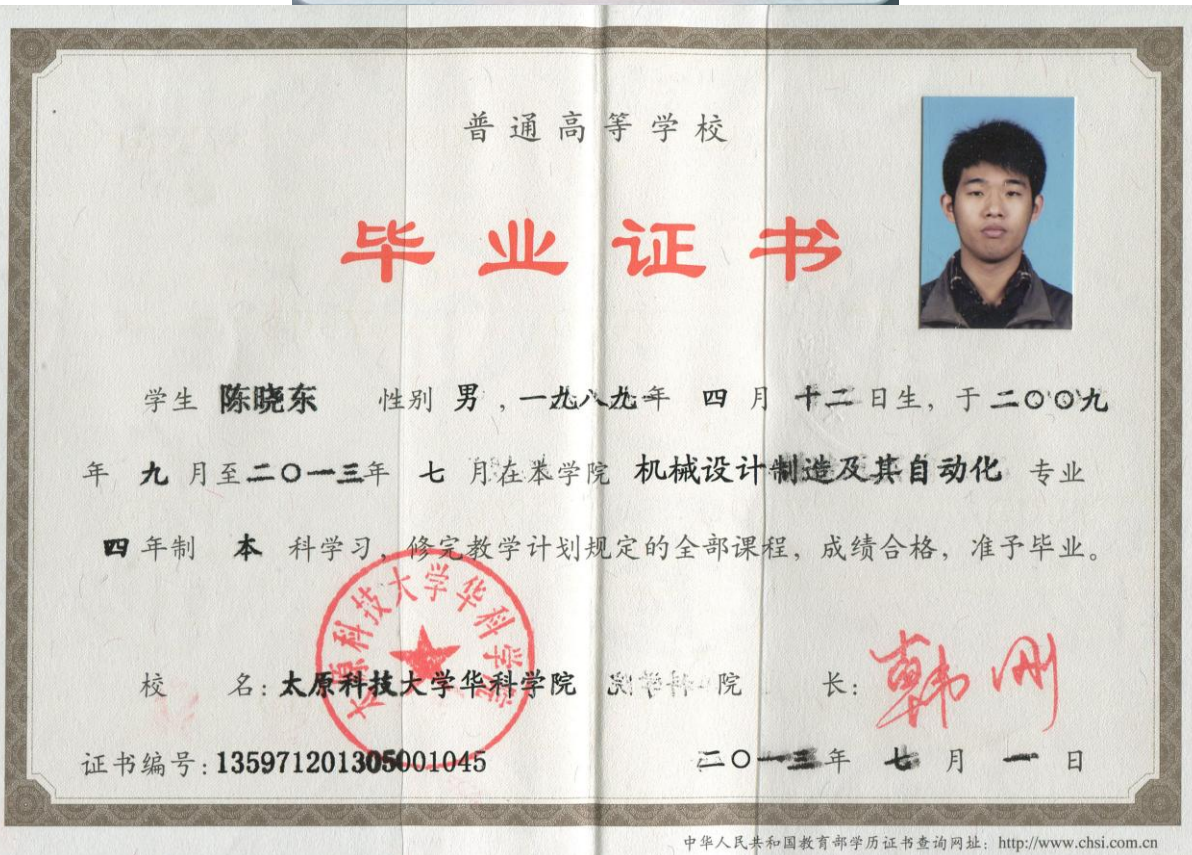 普通高等学校
毕业证书
学生 陈晓东 性别 男 ，一九八九年 四 月 十二 日生，于 二〇〇九
年 九 月至二〇一三年 七 月在本学院 机械设计制造及其自动化 专业
四 年制 本 科学习，修完教学计划规定的全部课程，成绩合格，准予毕业。
太原科技大学华科学院
校 名：太原科技大学华科学院 院 长：韩刚
证书编号：135971201305001045 二〇一三年 七 月 一 日
中华人民共和国教育部学历证书查询网址：http://www.chsi.com.cn